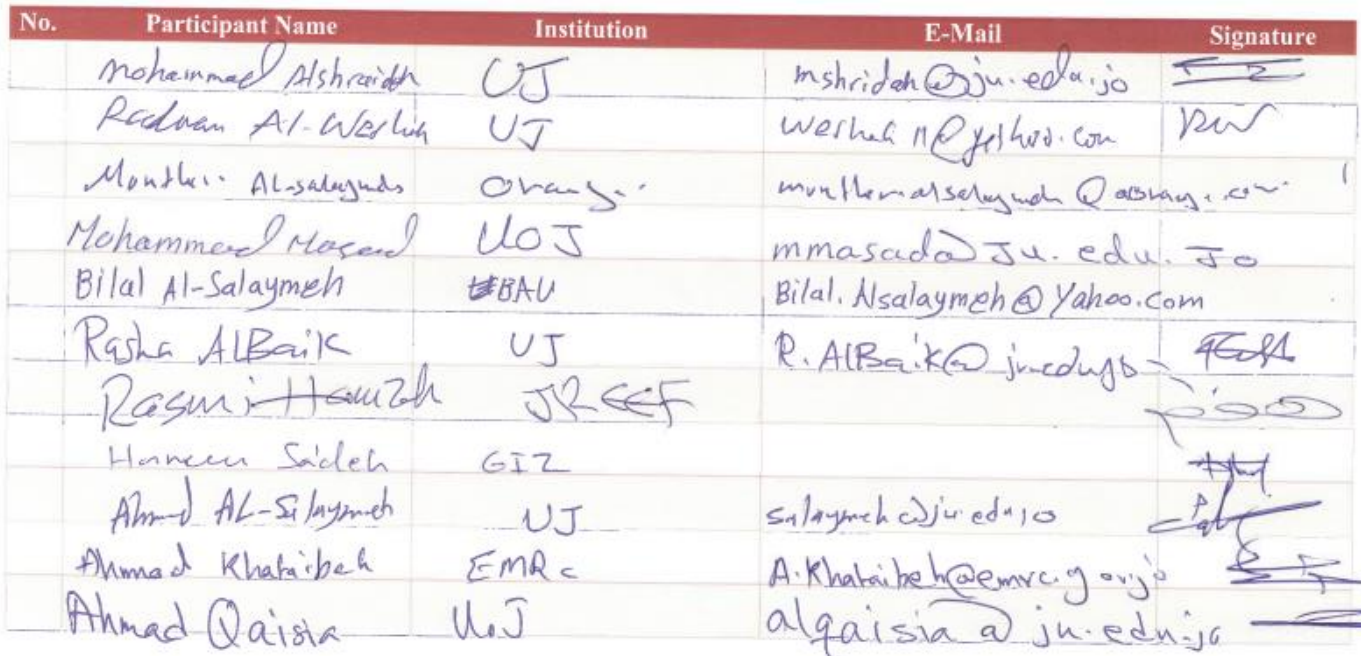 No. Participant Name Institution E-Mail Signature
Mohammad Alshraideh UJ mshridah@ju.edu.jo
Radwan Al-Weshah UJ weshah11@yahoo.com
Al-salaymeh Orange
Mohammed Masad UOJ mmasada@Ju.edu.Jo
Bilal Al-Salaymeh BAU Bilal.Alsalaymeh@Yahoo.com
Rasha AlBaik UJ R.AlBaik@ju.edu.jo
Rasmi Hamzh JREEF
Haneen Sadeh GIZ
Ahmad AL-Salaymeh UJ salaymeh@ju.edu.jo
Ahmad Khataibeh EMRc A.Khataibeh@emrc.gov.jo
Ahmad Qaisia U.J alqaisia@ju.edu.jo